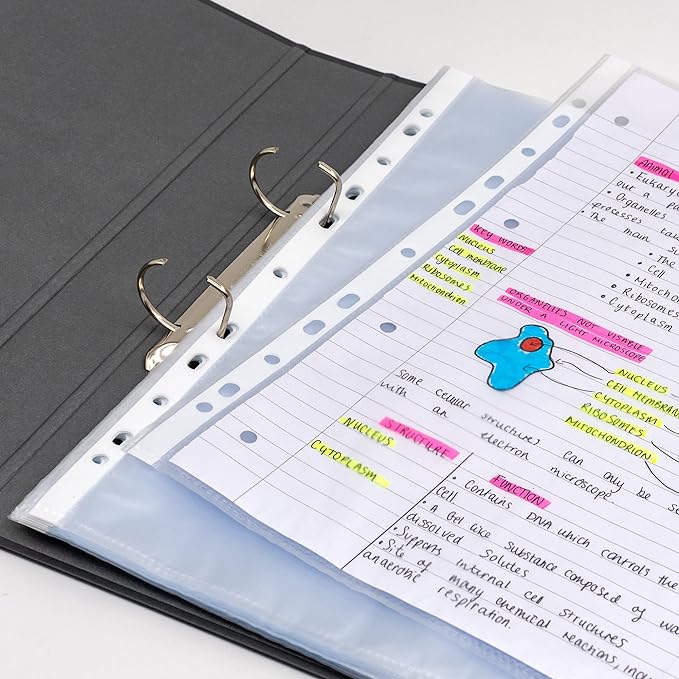 ANIMAL
• Eukaryo
out a pa
• Organelles
processes take
• The main su
• The
• Cell
• Mitochon
• Ribosomes
• Cytoplasm
KEY WORDS
NUCLEUS
Cell membrane
Cytoplasm
Ribosomes
Mitochondrion
ORGANELLES NOT VISABLE
UNDER A LIGHT MICROSCOPE
NUCLEUS
CELL MEMBRAN
CYTOPLASM
RIBOSOMES
MITOCHONDRION
Some cellular structures can only be se
with an electron microscope.
STRUCTURE
FUNCTION
NUCLEUS
• Contains DNA which controls the
cell
CYTOPLASM
• A Gel like Substance composed of wa
dissolved Solutes
• Supports internal cell structures
• Site of many chemical reactions, incl
anaerobic respiration.